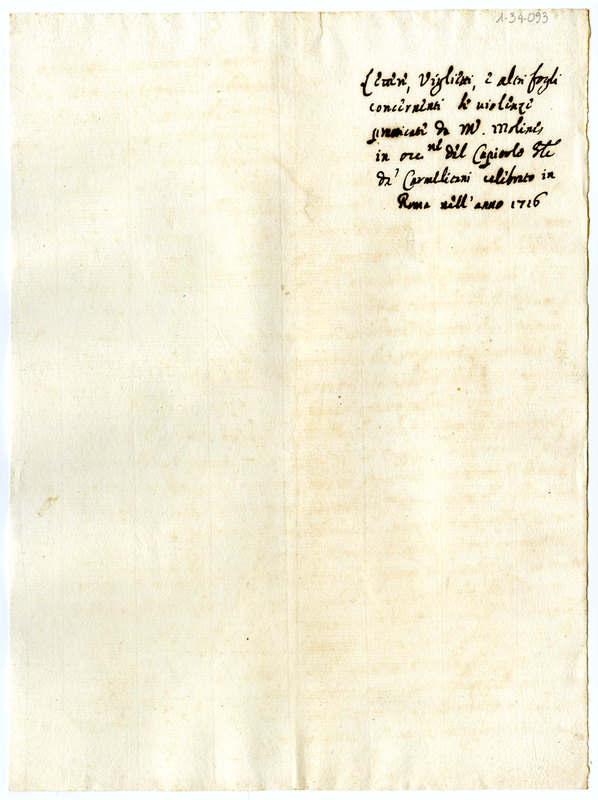 1-34-093
Lettere, Viglietti, e altri fogli
concernenti le violenze
praticate da M.r Molines
in occ.ne del Capitolo Gle
de' Carmelitani celebrato in
Roma nell'anno 1716